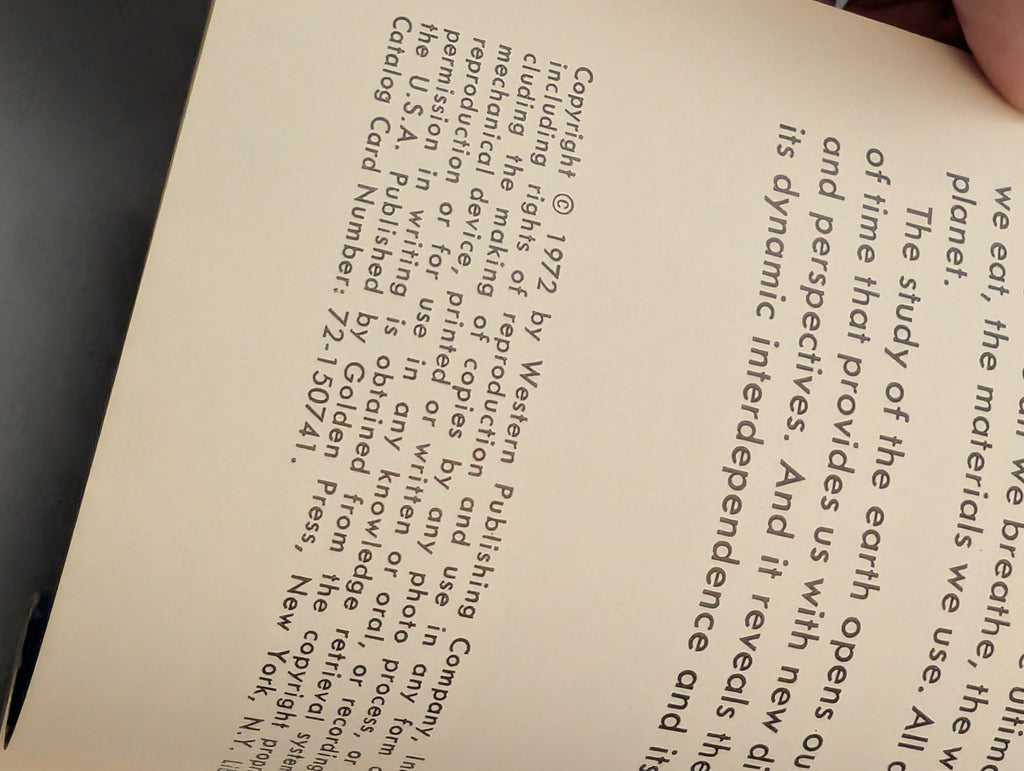 we breathe, the
we eat, the materials we use. All
planet.
The study of the earth opens
of time that provides us with new
and perspectives. And it reveals the
its dynamic interdependence and its
Copyright © 1972 by Western Publishing Company,
including rights of reproduction and use in any form
cluding the making of copies by any photo process, or
mechanical device, printed or written or oral, or recording
reproduction or for use in any knowledge retrieval
permission in writing is obtained from the copyright
the U.S.A. Published by Golden Press, New York, N.Y.
Catalog Card Number: 72-150741.